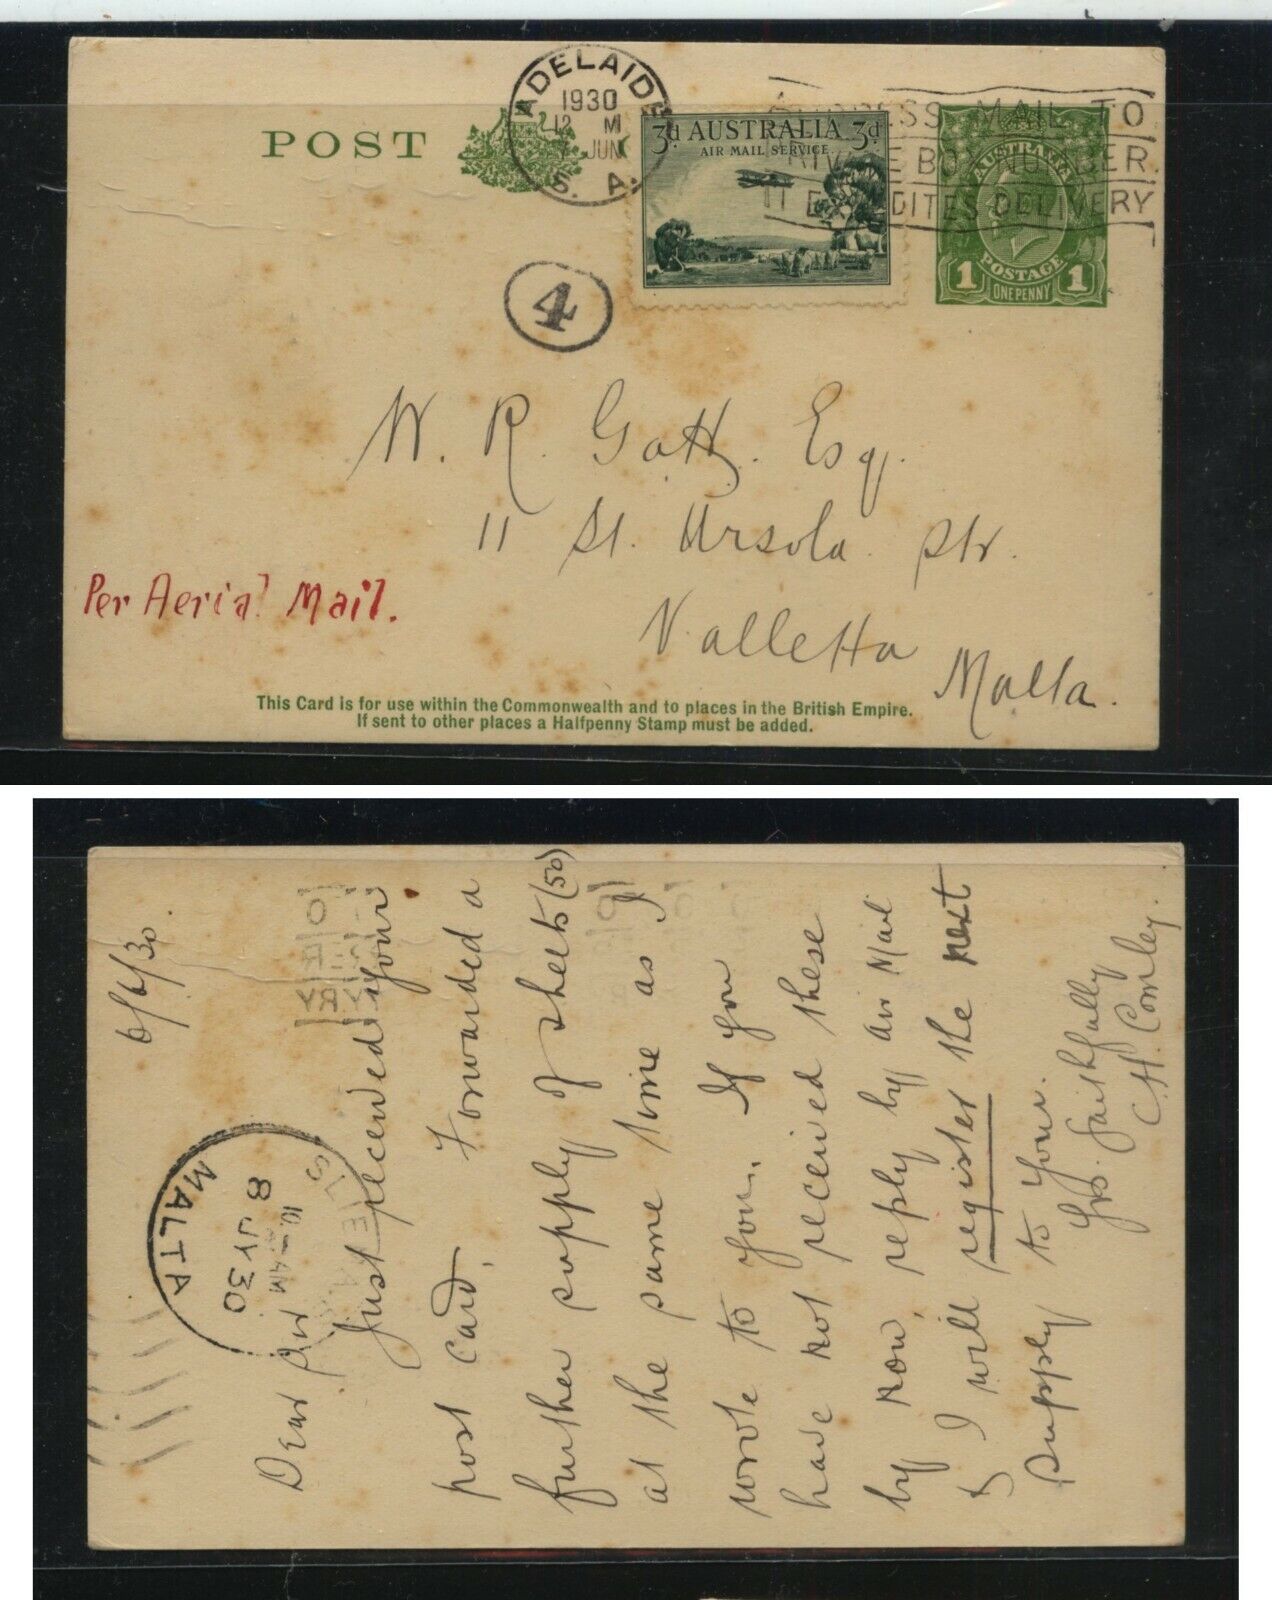 POST
ADELAIDE
1930
12 M
7 JUN
S. A.
ADDRESS MAIL TO
PRIVATE BOX NUMBER
IT EXPEDITES DELIVERY
3d AUSTRALIA 3d
AIR MAIL SERVICE
AUSTRALIA
POSTAGE
1 ONE PENNY 1
4
W. R. Gatt. Esq.
11 St. Ursola Str.
Valletta
Malta.
Per Aerial Mail.
This Card is for use within the Commonwealth and to places in the British Empire.
If sent to other places a Halfpenny Stamp must be added.
6/6/30
MALTA
10 - AM
8 JY 30
Dear Sir
Just received your
post card. Forwarded a
further supply of sheets (50)
at the same time as I
wrote to you. If you
have not received these
by now, reply by air mail
& I will register the next
supply to you.
Yrs. faithfully
C.H. Comley.